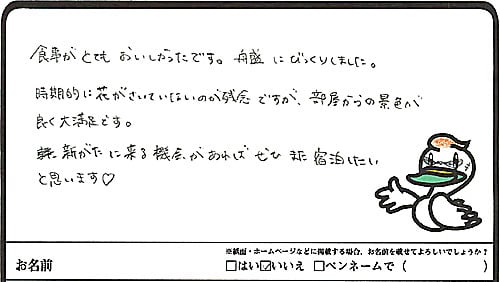 食事がとても おいしかったです。舟盛 にびっくりしました。
時期的に花がさいていないのが残念 ですが、部屋からの景色が
良く大満足です。
新がた に来る機会があれば ぜひ また 宿泊したい
と思います♡
※紙面・ホームページなどに掲載する場合、お名前を載せてよろしいでしょうか?
お名前 □はい ☑いいえ □ペンネームで ( )